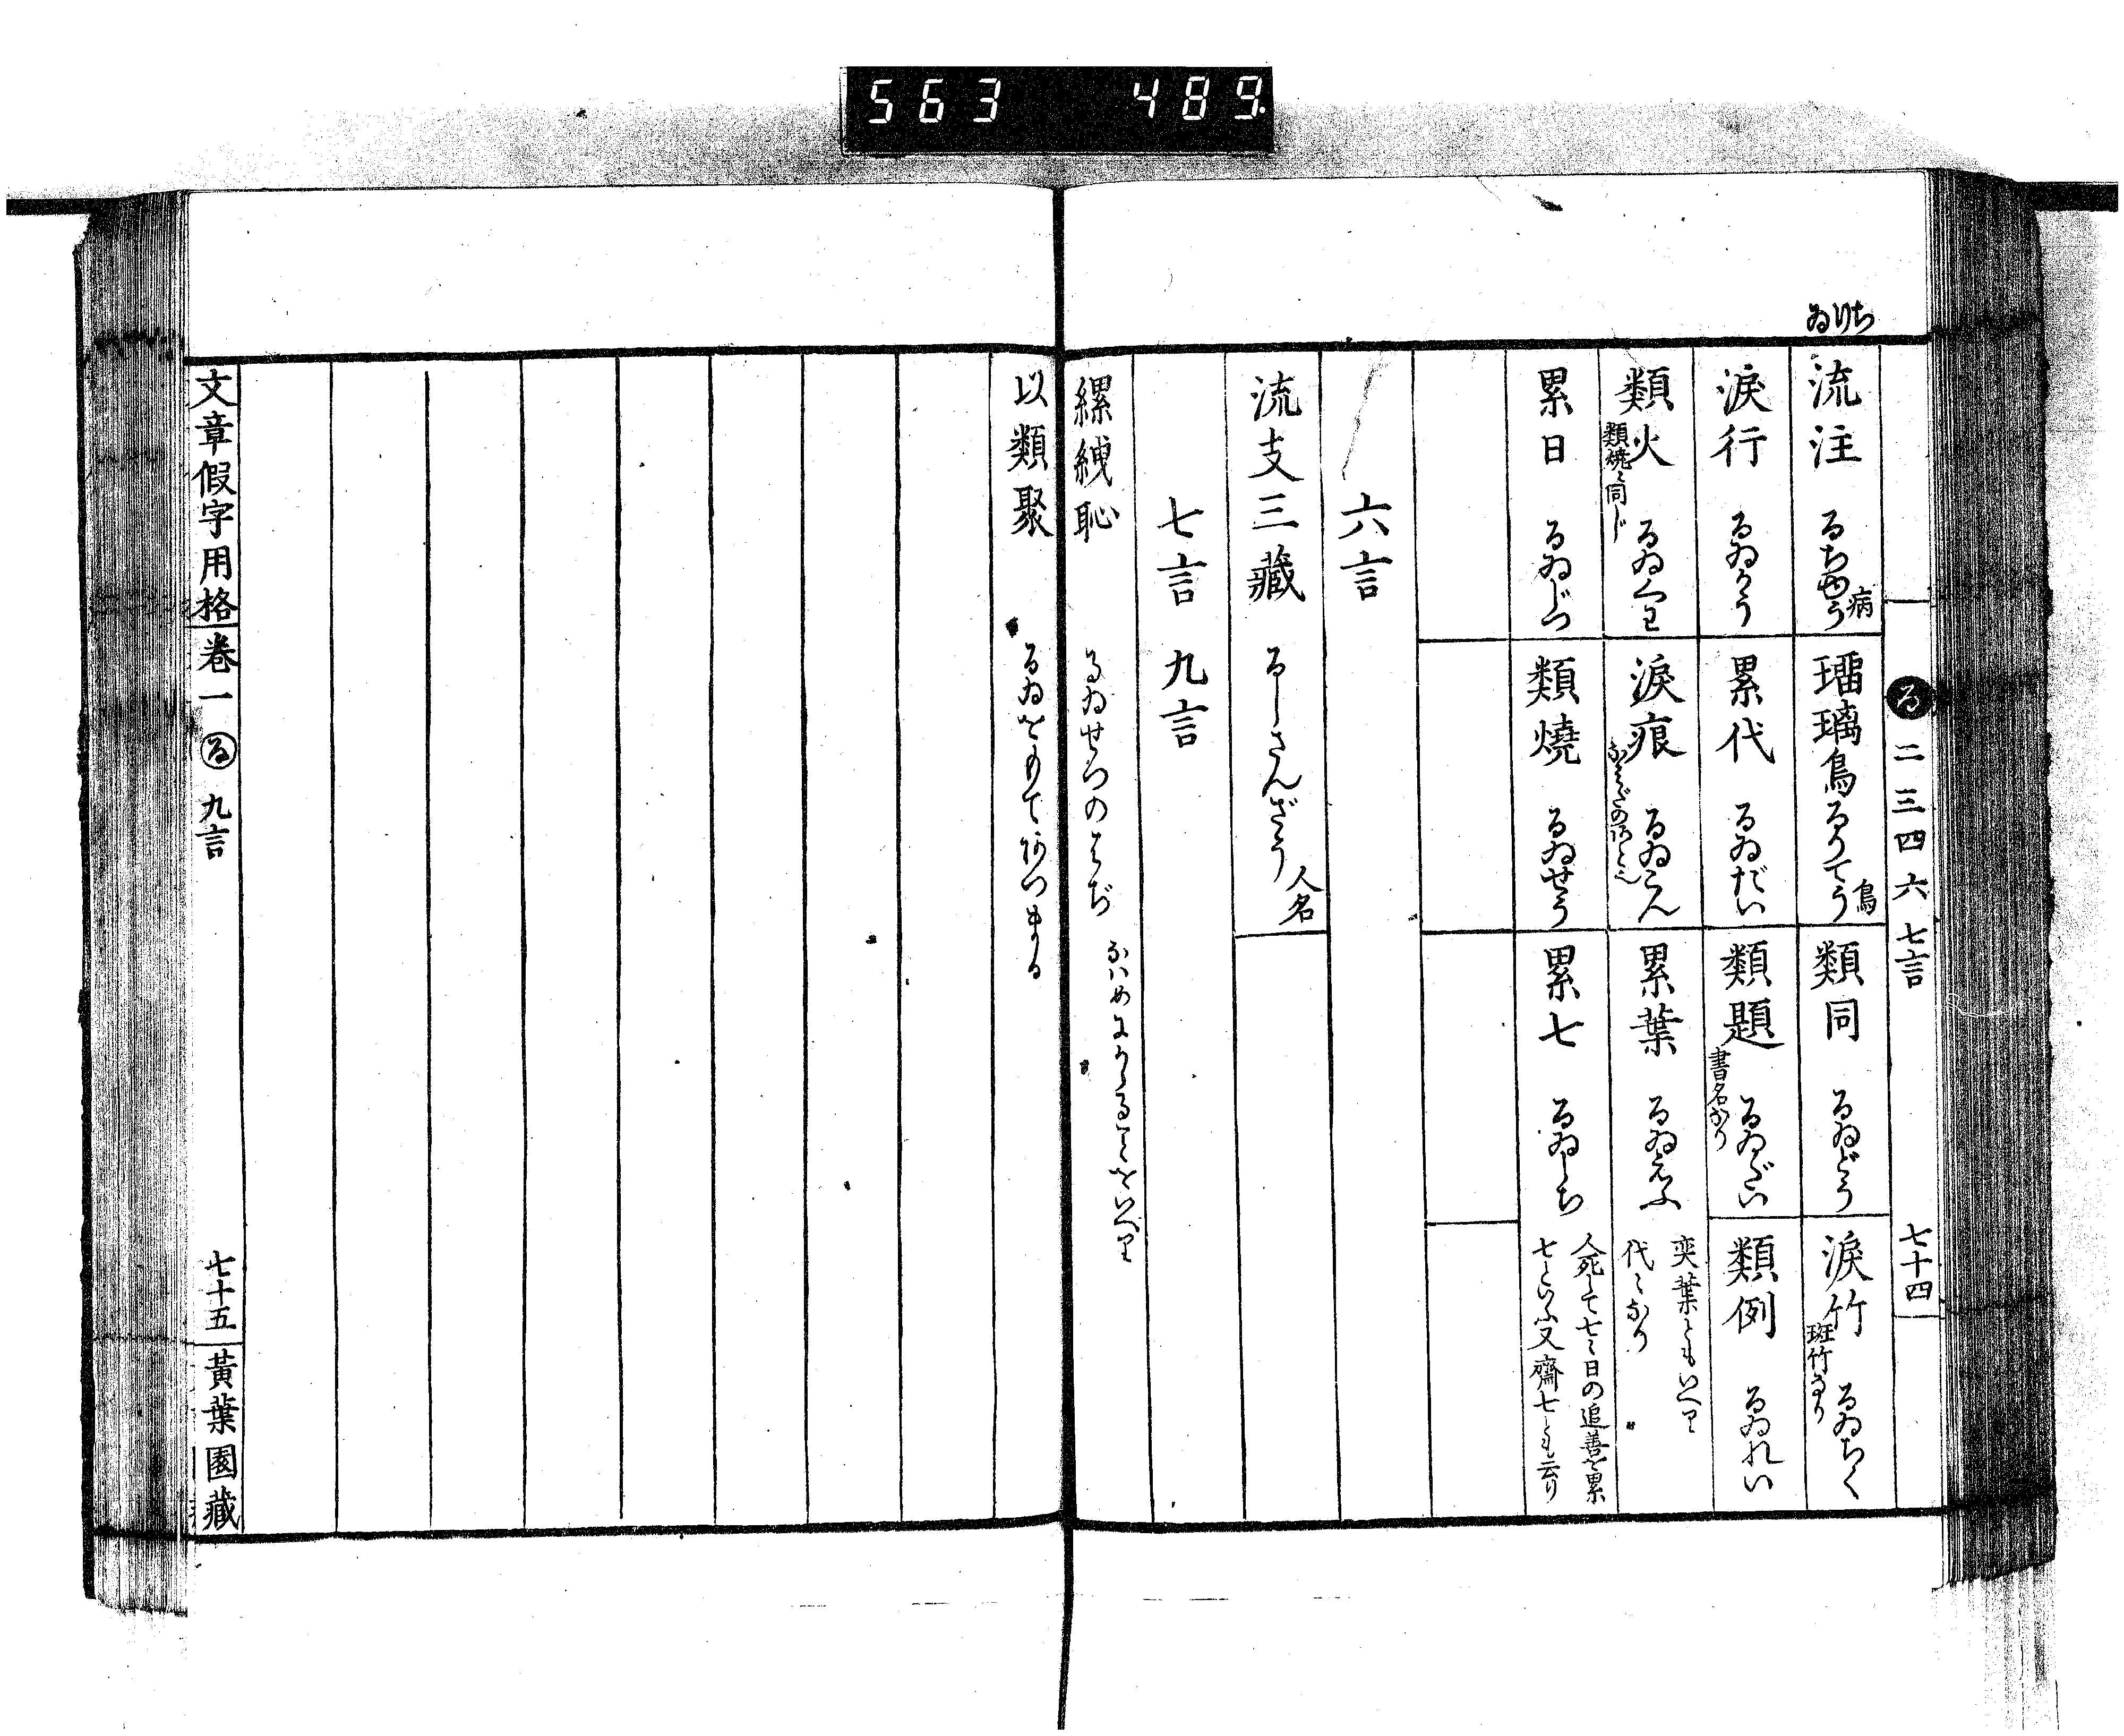 563 489
ちりゐ
る 二三四六七言 七十四
流注 るちゆう 病
瑠璃鳥 るりてう 鳥
類同 るゐどう
淚竹 るゐちく 斑竹なり
淚行 るゐかう
累代 るゐだい
類題 るゐだい 書名なり
類例 るゐれい
類火 るゐくわ 類燒に同じ
淚痕 るゐこん なみだのあと也
累葉 るゐえふ 奕葉ともいへり
代々なり
累日 るゐじつ
類燒 るゐせう
累七 るゐしち 人死して七々日の追善を累
七といふ又齋七とも云り
六言
流支三藏 るしさんざう 人名
七言 九言
縲絏恥 るゐせつのはぢ なはめにかゝることをいへり
以類聚 るゐをもてあつまる
文章假字用格 卷一 る 九言 七十五 黃葉園藏